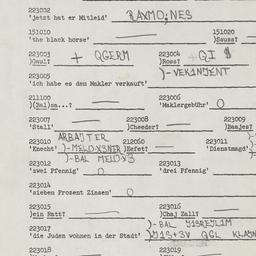 223002
'jetzt hat er Mitleid' RAXMO;NES
151010 151020
'the black horse' )Sauss?
223003 223004
)Gaul? + QGERM )Ross? +QI $
)-VEKAINJENT
223005
'ich habe es dem Makler verkauft'
211100 223006
)(Jul)sn...? 'Maklergebühr' O
223007 223008 223009
'Stall' )Cheeder? )Baajes?
ARBAJTER
223010 212060 223011
'Knecht' )-MELOX3NER )Eefet? 'Dienstmagd'
)-BAL MELOX3
223012 223013
'zwei Pfennig' O 'drei Pfennig'
223014
'sieben Prozent Zinsen' O
223015 223016
)ein Ratt? )Chaj Zall?
)-BAL JISREJLIM
223017
'die Juden wohnen in der Stadt' )JIS+3V QGL KLAJN
223018 223019